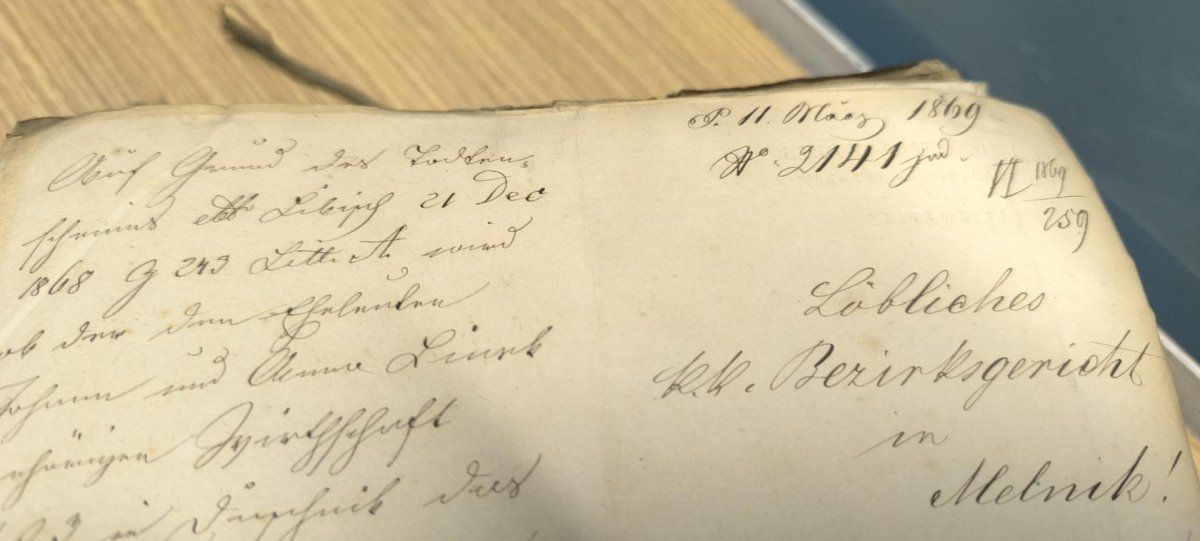 Auf Grund des Todten-
scheines dto Libisch 21 Dec
1868 Z 243 Litt. A. wird
ob der den Eheleuten
Johann und Anna Linek
gehörigen Wirthschaft
in Duschnik das
P. 11. März 1869
N. 2141 jud.
VI 1869
259
Löbliches
k.k. Bezirksgericht
in
Melnik!